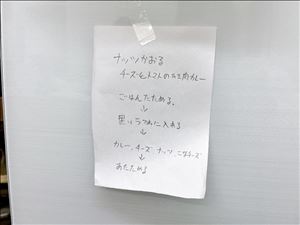 ナッツかおる
チーズとトマトのひき肉カレー
ごはんたためる。
↓
黒いうつわに入れる
↓
カレー、チーズ、ナッツ、こなチーズ
↓
あたためる